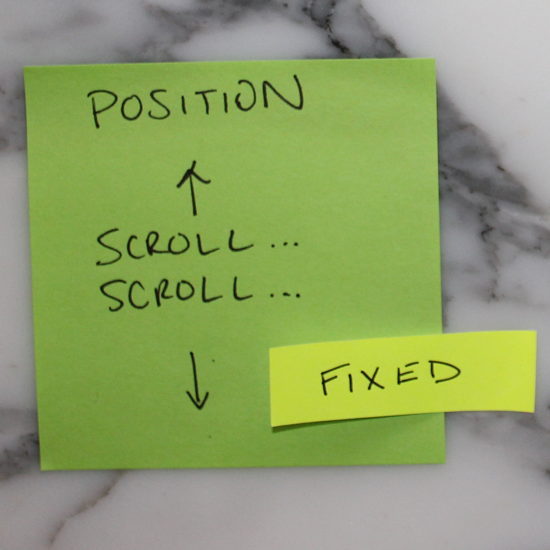 POSITION
SCROLL...
SCROLL...
FIXED